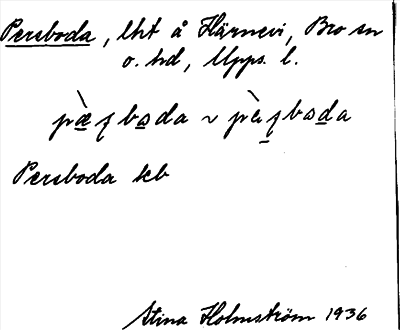 Persboda, lht å Härnevi, Bro sn
o. hd, Upps. l.
Persboda kb
Stina Holmström 1936